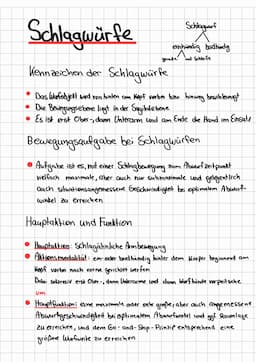 Schlagwürfe
Schlagwurf
einhändig beidhändig
gerade mit Schleife
Kennzeichen der Schlagwürfe
Das Wurfobjekt wird von hinten am Kopf vorbei bzw. hinweg beschleunigt
Die Bewegungsebene liegt in der Sagittalebene
Es ist erst Ober-, dann Unterarm und am Ende die Hand im Einsatz
Bewegungsaufgabe bei Schlagwürfen
Aufgabe ist es, mit einer Schlagbewegung zum Abwurfzeitpunkt
vielfach maximale, aber auch nur submaximale und gelegentlich
auch situationsangemessene Geschwindigkeit bei optimalem Abwurf-
winkel zu erreichen
Hauptaktion und Funktion
Hauptaktion: Schlagähnliche Armbewegung
Aktionsmodalität: ein- oder beidhändig hinter dem Körper beginnend am
Kopf vorbei nach vorne gerichtet werfen
Dabei zuerst Ober-, dann Unterarme und dann Wurfhände
um
Hauptfunktion: eine maximale oder sehr große, aber auch angemessene
Abwurfgeschwindigkeit bei optimalem Abwurfwinkel und ggf. Raumlage
zu erreichen, und dem Go-and-Stop-Prinzip entsprechend eine
größere Wurfweite zu erreichen